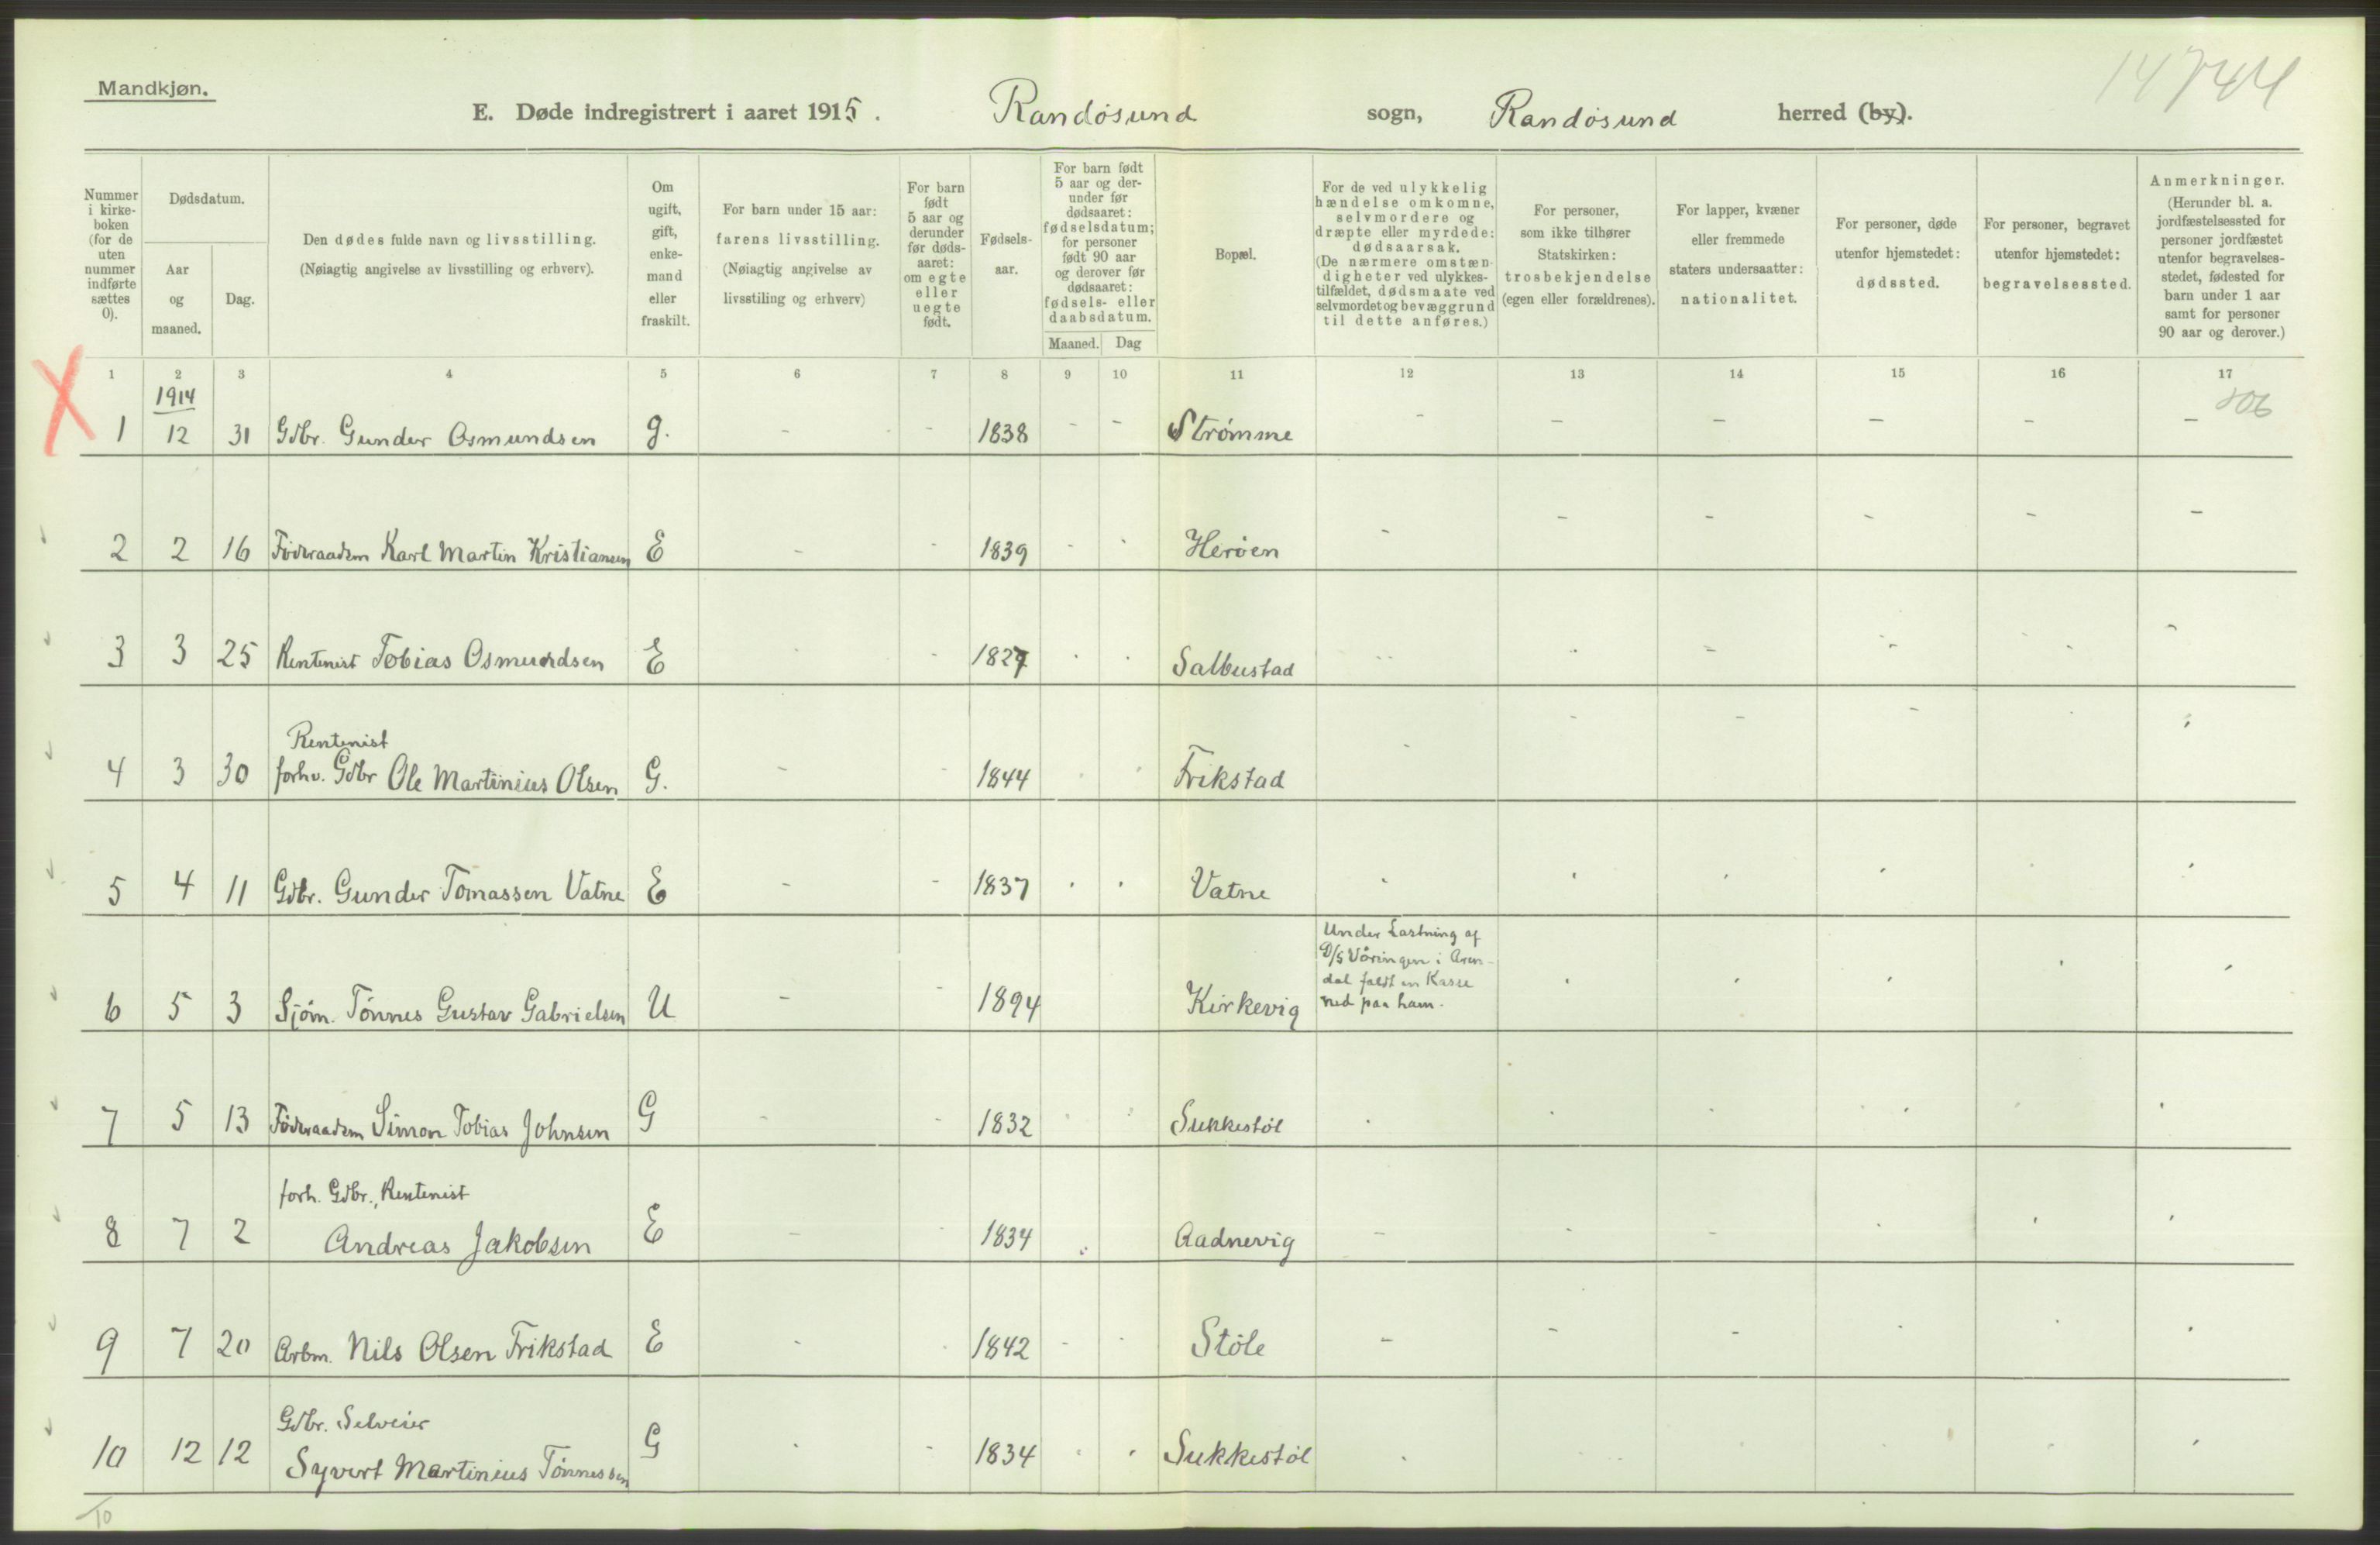 Mandkjøn.
14744
E. Døde indregistrert i aaret 1915. Randøsund sogn, Randøsund herred (by).
Nummer i kirke-boken (for de uten nummer indførte sættes 0).
Dødsdatum.
Aar og maaned.
Dag.
Den dødes fulde navn og livsstilling.
(Nøiagtig angivelse av livsstilling og erhverv).
Om ugift, gift, enke-mand eller fraskilt.
For barn under 15 aar:
farens livsstilling.
(Nøiagtig angivelse av
livsstiling og erhverv)
For barn født 5 aar og derunder før døds-aaret: om egte eller uegte født.
Fødsels-aar.
For barn født 5 aar og der-under før dødsaaret: fødselsdatum; for personer født 90 aar og derover før dødsaaret: fødsels- eller daabsdatum.
Maaned. Dag
Bopæl.
For de ved ulykkelig hændelse omkomne, selvmordere og dræpte eller myrdede: dødsaarsak.
(De nærmere omstæn-digheter ved ulykkes-tilfældet, dødsmaate ved selvmordet og bevæggrund til dette anføres.)
For personer, som ikke tilhører Statskirken: trosbekjendelse (egen eller forældrenes).
For lapper, kvæner eller fremmede staters undersaatter: nationalitet.
For personer, døde utenfor hjemstedet: dødssted.
For personer, begravet utenfor hjemstedet: begravelsessted.
Anmerkninger.
(Herunder bl. a. jordfæstelsessted for personer jordfæstet utenfor begravelses-stedet, fødested for barn under 1 aar samt for personer 90 aar og derover.)
1 2 3 4 5 6 7 8 9 10 11 12 13 14 15 16 17
1914
1 12 31 Gdbr. Gunder Osmundsen g. - - 1838 - - Strømme - - - - - -
2 2 16 Føderaadsm Karl Martin Kristiansen E - - 1839 - - Herøen - - - - - -
3 3 25 Rentenist Tobias Osmundsen E - - 1827 - - Salbustad - - - - - -
Rentenist
4 3 30 forhv. Gdbr Ole Martinius Olsen G. - - 1844 - - Frikstad - - - - - -
5 4 11 Gdbr. Gunder Tomassen Vatne E - - 1837 - - Vatne - - - - - -
Under Lastning af
D/S Vøringen i Aren-
dal faldt en Kasse
6 5 3 Sjøm. Tønnes Gustav Gabrielsen U - - 1894 Kirkevig ned paa ham. - - - - -
7 5 13 Føderaadsm Simon Tobias Johnsen G - - 1832 - - Sukkestøl - - - - - -
forh. Gdbr., Rentenist
8 7 2 Andreas Jakobsen E - 1834 - Aadnevig - - - - - -
9 7 20 Arbm. Nils Olsen Frikstad E - - 1842 - - Støle - - - - - -
Gdbr. Selveier
10 12 12 Syvert Martinius Tønnessen G - - 1834 - - Sukkestøl - - - - - -
10